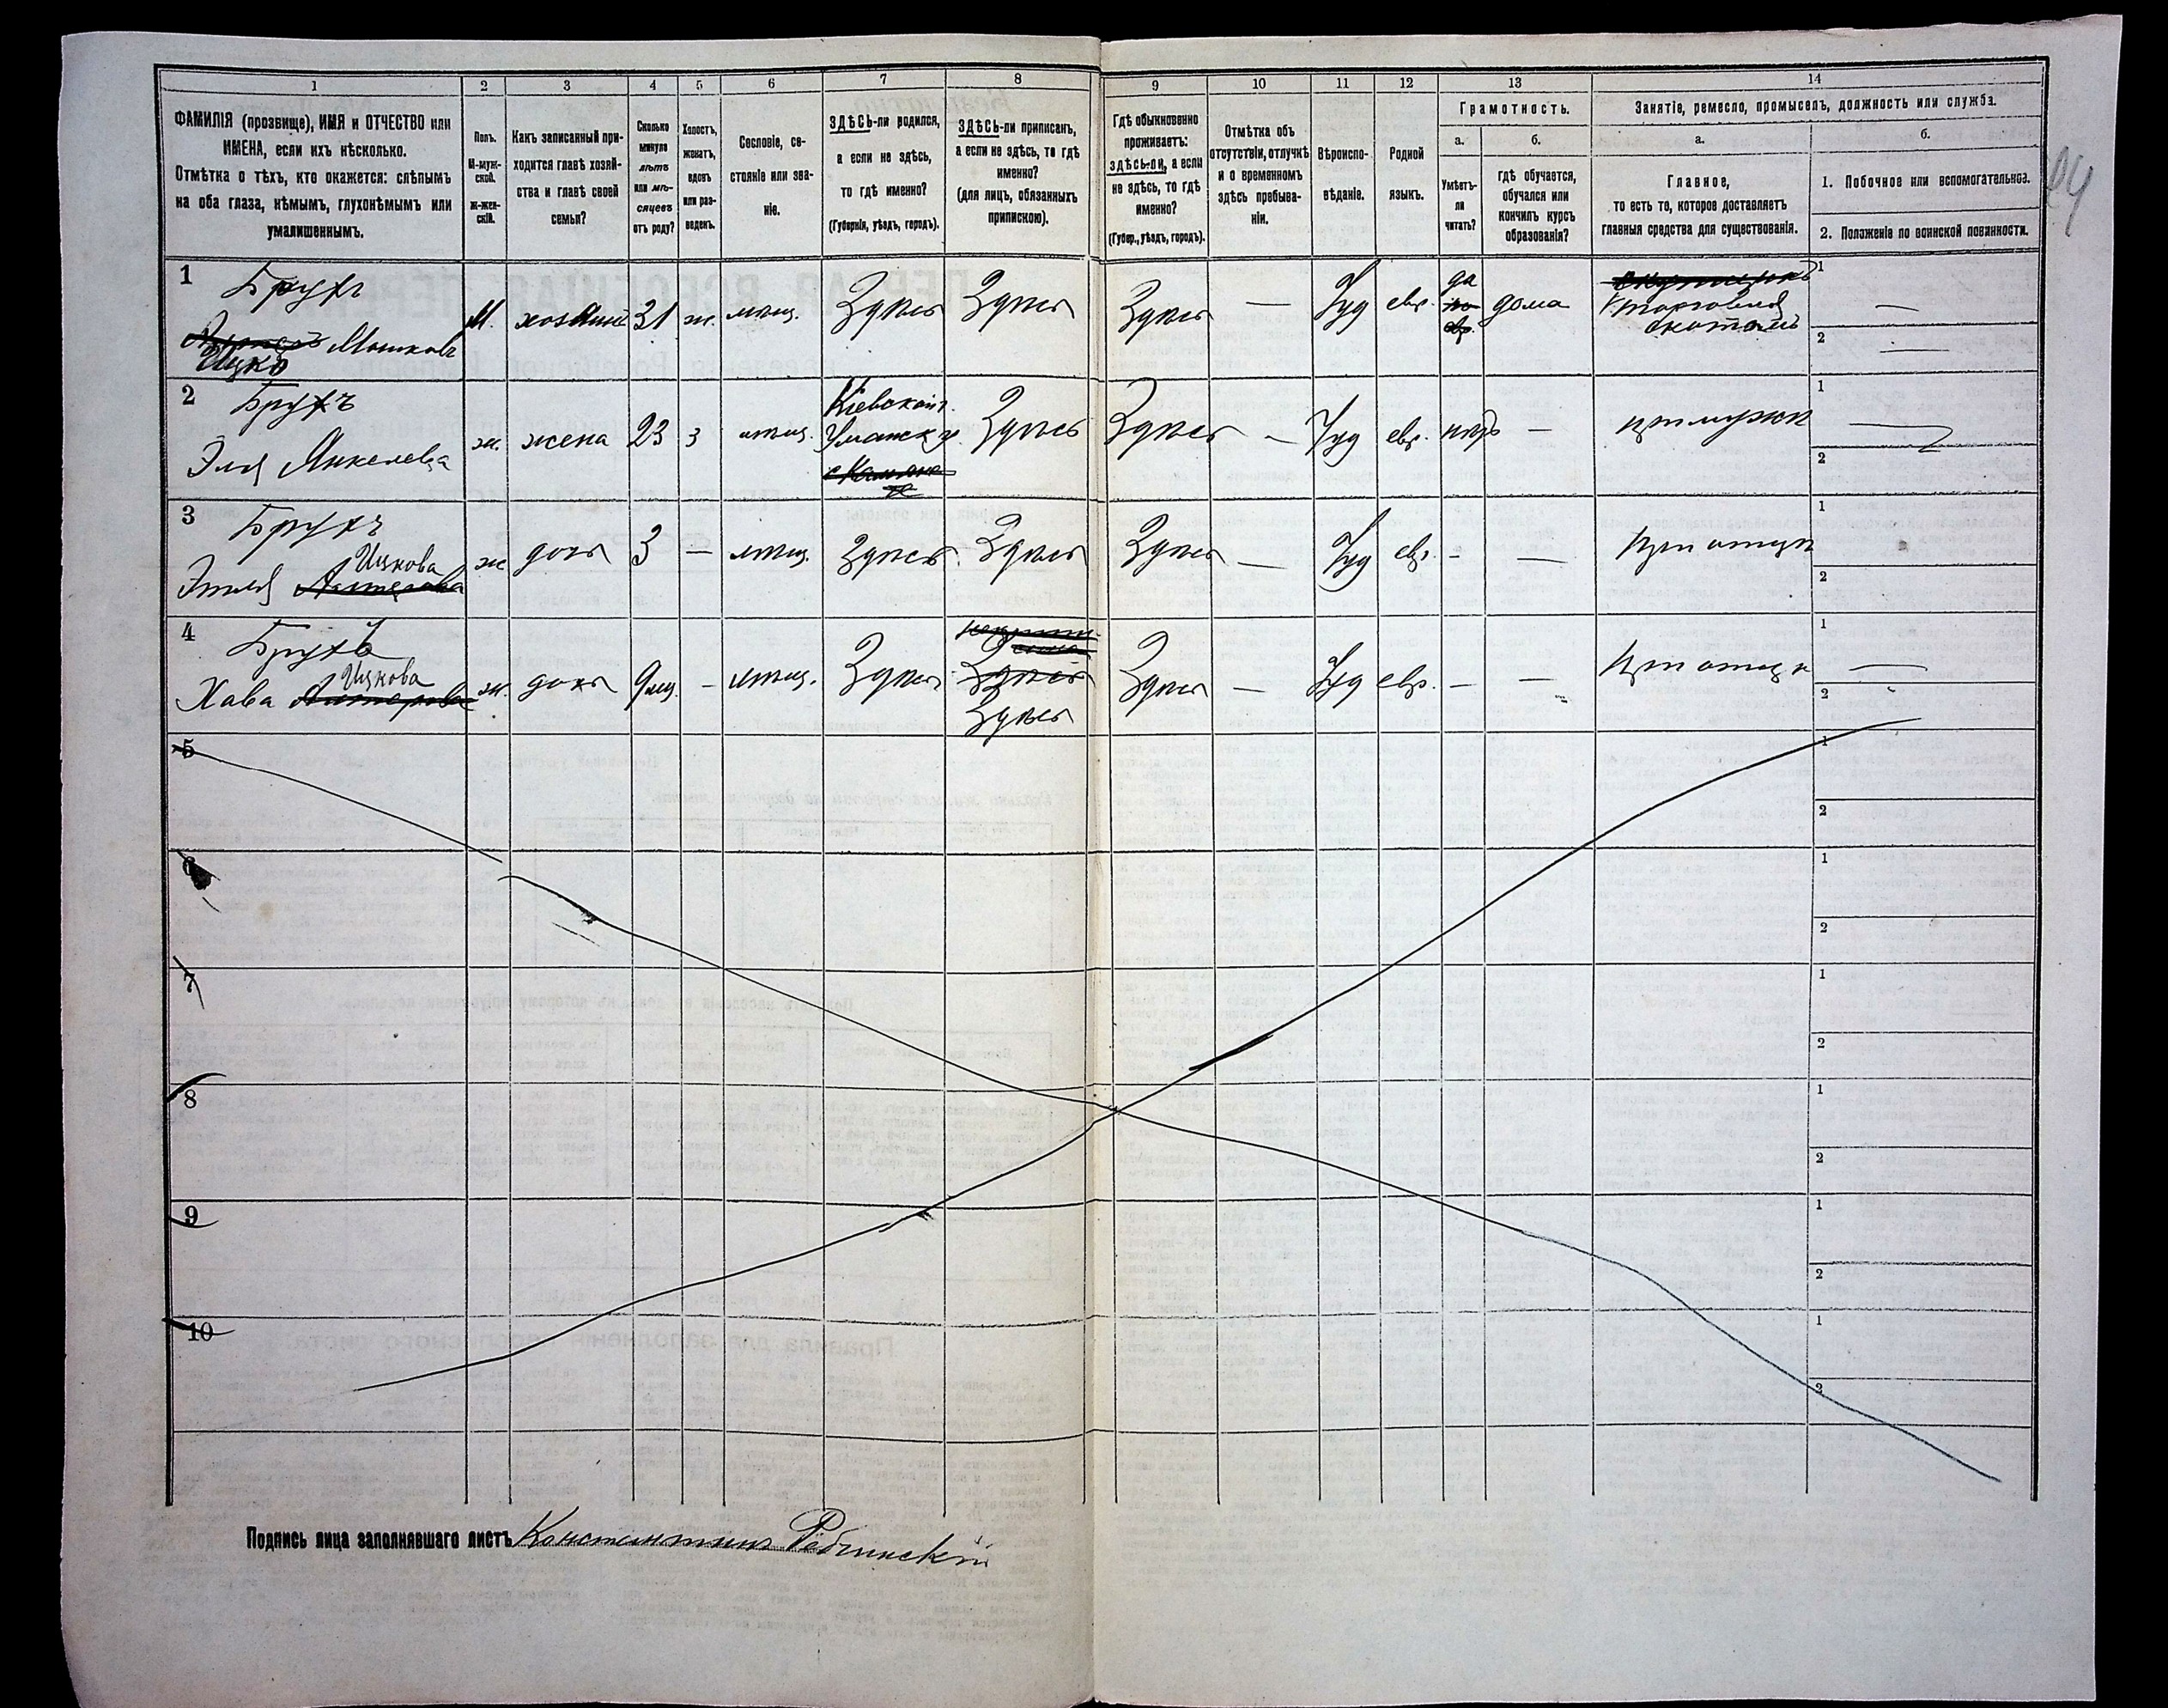 1 2 3 4 5 6 7 8 9 10 11 12 13 14
ФАМИЛІЯ (прозвище), ИМЯ и ОТЧЕСТВО или
ИМЕНА, если ихъ нѣсколько.
Отмѣтка о тѣхъ, кто окажется: слѣпымъ
на оба глаза, нѣмымъ, глухонѣмымъ или
умалишеннымъ.
Полъ.
М-муж-
ской.
Ж-жен-
скій.
Какъ записанный при-
ходится главѣ хозяй-
ства и главѣ своей
семьи?
Сколько
минуло
лѣтъ
или мѣ-
сяцевъ
отъ роду?
Холостъ,
женатъ,
вдовъ
или раз-
веденъ.
Сословіе, со-
стояніе или зва-
ніе.
ЗДѢСЬ-ли родился,
а если не здѣсь,
то гдѣ именно?
(Губернія, уѣздъ, городъ).
ЗДѢСЬ-ли приписанъ,
а если не здѣсь, то гдѣ
именно?
(для лицъ, обязанныхъ
припискою).
Гдѣ обыкновенно
проживаетъ:
здѣсь-ли, а если
не здѣсь, то гдѣ
именно?
(Губер., уѣздъ, городъ).
Отмѣтка объ
отсутствіи, отлучкѣ
и о временномъ
здѣсь пребыва-
ніи.
Вѣроиспо-
вѣданіе.
Родной
языкъ.
Грамотность.
а.
Умѣетъ-
ли
читать?
б.
гдѣ обучается,
обучался или
кончилъ курсъ
образованія?
Занятіе, ремесло, промыселъ, должность или служба.
а.
Главное,
то есть то, которое доставляетъ
главныя средства для существованія.
б.
1. Побочное или вспомогательное.
2. Положеніе по воинской повинности.
1 Брухъ
Мошковъ
Ицко
М. хозяинъ 31 ж. мѣщ. Здѣсь Здѣсь Здѣсь — Іуд евр. да дома торговля
скотомъ
1 —
2 —
2 Брухъ
Эля Янкелева
ж. жена 23 з мѣщ. Кіевской г.
Уманск у.
Здѣсь Здѣсь — Іуд евр. нѣтъ — при мужѣ
1 —
2
3 Брухъ
Ицкова
Этля
ж дочь 3 — мѣщ. Здѣсь Здѣсь Здѣсь — Іуд евр. - — при отцѣ
1
2
4 Брухъ
Ицкова
Хава
ж. дочь 9 мц. - мѣщ. Здѣсь Здѣсь
Здѣсь
Здѣсь — Іуд евр. — — при отцѣ
1 —
2
5 1
2
6 1
2
7 1
2
8 1
2
9 1
2
10 1
2
Подпись лица заполнявшаго листъ Константинъ